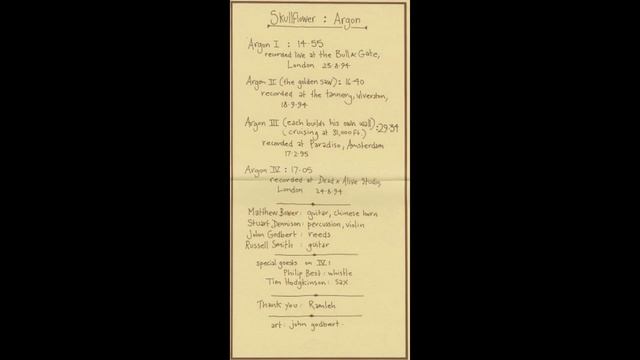 Skullflower : Argon
Argon I : 14.55
recorded live at the Bull & Gate,
London 23.8.94
Argon II (the golden saw) : 16.40
recorded at the tannery, ulverston,
18.9.94
Argon III (each builds his own wall) : 29.34
(cruising at 31,000 ft.)
recorded at Paradiso, Amsterdam
17.2.95
Argon IV : 17.05
recorded at Dead x Alive Studio,
London 24.8.94
Matthew Bower : guitar, chinese horn
Stuart Dennison : percussion, violin
John Godbert : reeds
Russell Smith : guitar
special guests on IV :
Philip Best : whistle
Tim Hodgkinson : sax
Thank you : Ramleh
art : john godbert